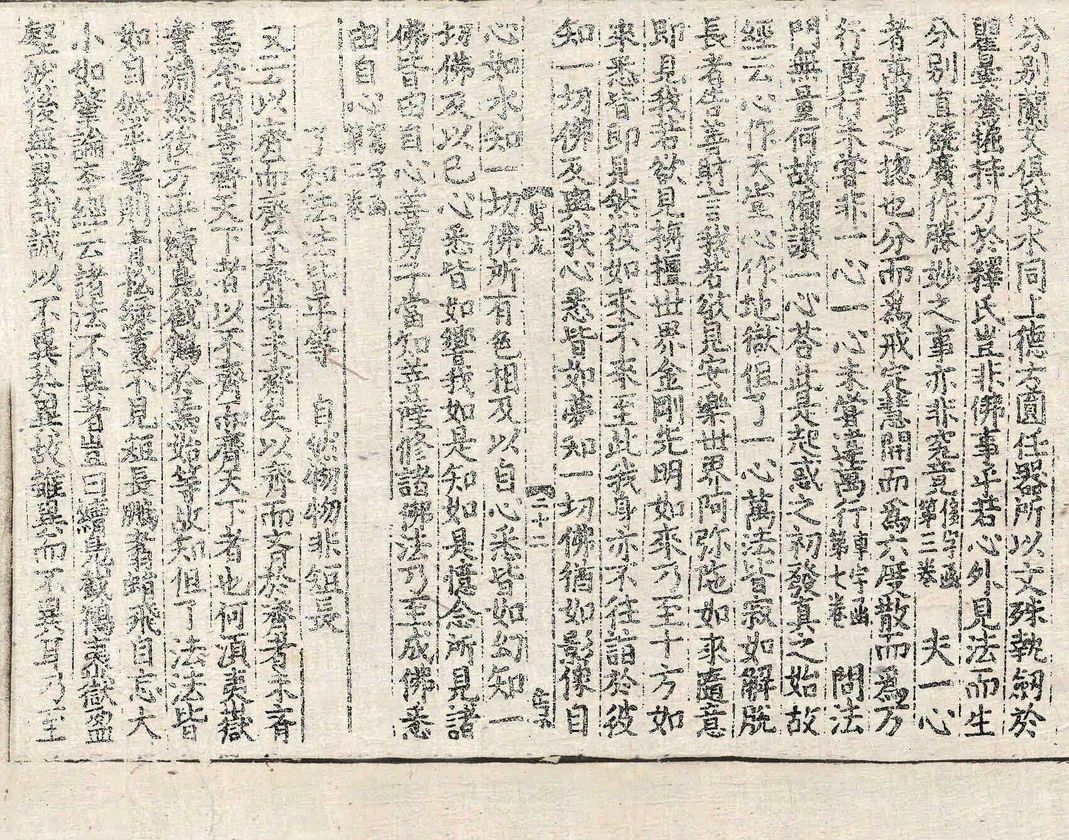 分別蘭艾俱焚水同上德方圓任器所以文殊執劒於
瞿曇鴦掘持刀於釋氏豈非佛事乎若心外見法而生
分別直饒廣作勝妙之事亦非究竟俊字函第三卷　夫一心
者萬事之揔也分而爲戒定慧開而爲六度散而爲万
行萬行未嘗非一心一心未嘗違萬行車字函第七卷　問法
門無量何故偏讃一心荅此是起惑之初發真之始故
經云心作天堂心作地獄但了一心萬法皆寂如解脫
長者告善財言我若欲見安樂世界阿弥陁如來隨意
即見我若欲見栴檀世界金剛光明如來乃至十方如
來悉皆即見然彼如來不來至此我身亦不往詣於彼
知一切佛及與我心悉皆如夢知一切佛猶如影像自
二十三
心如水知一切佛所有色相及以自心悉皆如幻知一
切佛及以己心悉皆如響我如是知如是憶念所見諸
佛皆由自心善男子當知菩薩修諸佛法乃至成佛悉
由自心
了知法法皆平等　自然物物非短長
又云以齊而齊不齊者未齊矣以齊而齊於齊者未齊
焉余聞善齊天下者以不齊而齊天下者也何須夷嶽
實淵然後方平續鳧截鶴於焉始等故知但了法法皆
如自然平等則青松綠蔓不見短長鵬翥蜎飛自忘大
小如肇論本經云諸法不異者豈曰續鳧截鶴夷嶽盈
壑然後無異哉誠以不異於異故雖異而不異耳乃至